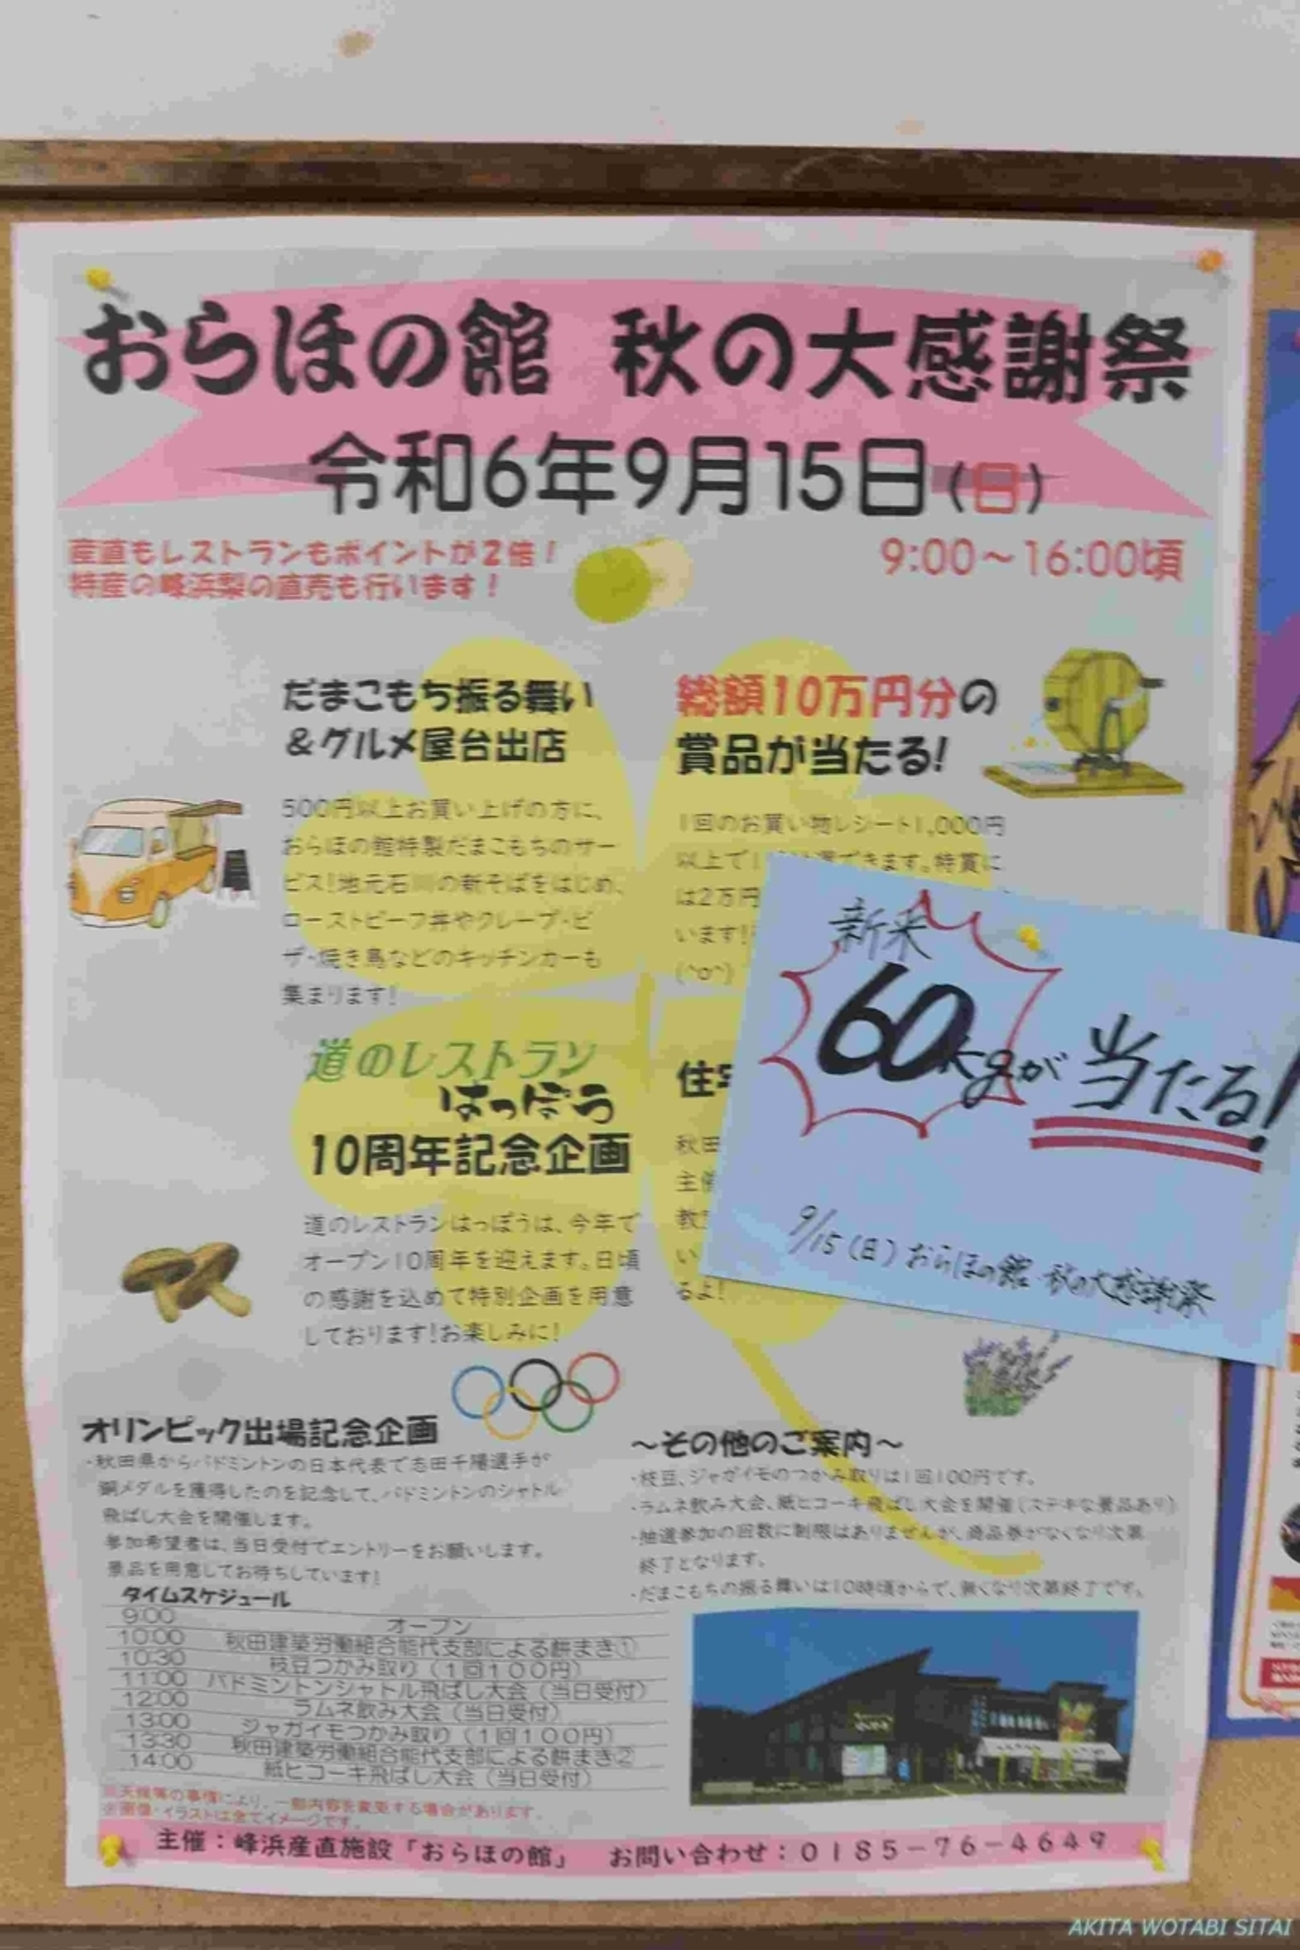 おらほの館 秋の大感謝祭
令和6年9月15日(日)
産直もレストランもポイントが2倍!
特産の峰浜梨の直売も行います!
9:00~16:00頃
だまこもち振る舞い
&グルメ屋台出店
500円以上お買い上げの方に、
おらほの館特製だまこもちのサー
ビス!地元石川の新そばをはじめ、
ローストビーフ丼やクレープ・ピ
ザ・焼き鳥などのキッチンカーも
集まります!
総額10万円分の
賞品が当たる!
1回のお買い物レシート1,000円
以上で1 できます。特賞に
は2万円
います!
(^o^)
新米
60kgが当たる!
9/15(日)おらほの館 秋の大感謝祭
道のレストラン
はっぽう
10周年記念企画
道のレストランはっぽうは、今年で
オープン10周年を迎えます。日頃
の感謝を込めて特別企画を用意
しております!お楽しみに!
住
秋田
主催
教
い
るよ!
オリンピック出場記念企画
・秋田県からバドミントンの日本代表で志田千陽選手が
銅メダルを獲得したのを記念して、バドミントンのシャトル
飛ばし大会を開催します。
参加希望者は、当日受付でエントリーをお願いします。
景品を用意してお待ちしています!
タイムスケジュール
9:00 オープン
10:00 秋田建築労働組合能代支部による餅まき①
10:30 枝豆つかみ取り(1回100円)
11:00 バドミントンシャトル飛ばし大会(当日受付)
12:00 ラムネ飲み大会(当日受付)
13:00 ジャガイモつかみ取り(1回100円)
13:30 秋田建築労働組合能代支部による餅まき②
14:00 紙ヒコーキ飛ばし大会(当日受付)
※天候等の事情により、一部内容を変更する場合があります。
※画像・イラストは全てイメージです。
~その他のご案内~
・枝豆、ジャガイモのつかみ取りは1回100円です。
・ラムネ飲み大会、紙ヒコーキ飛ばし大会を開催(ステキな景品あり)
・抽選参加の回数に制限はありませんが、商品券がなくなり次第
終了となります。
・だまこもちの振る舞いは10時頃からで、無くなり次第終了です。
主催:峰浜産直施設「おらほの館」 お問い合わせ:0185-76-4649
AKITA WOTABI SITAI